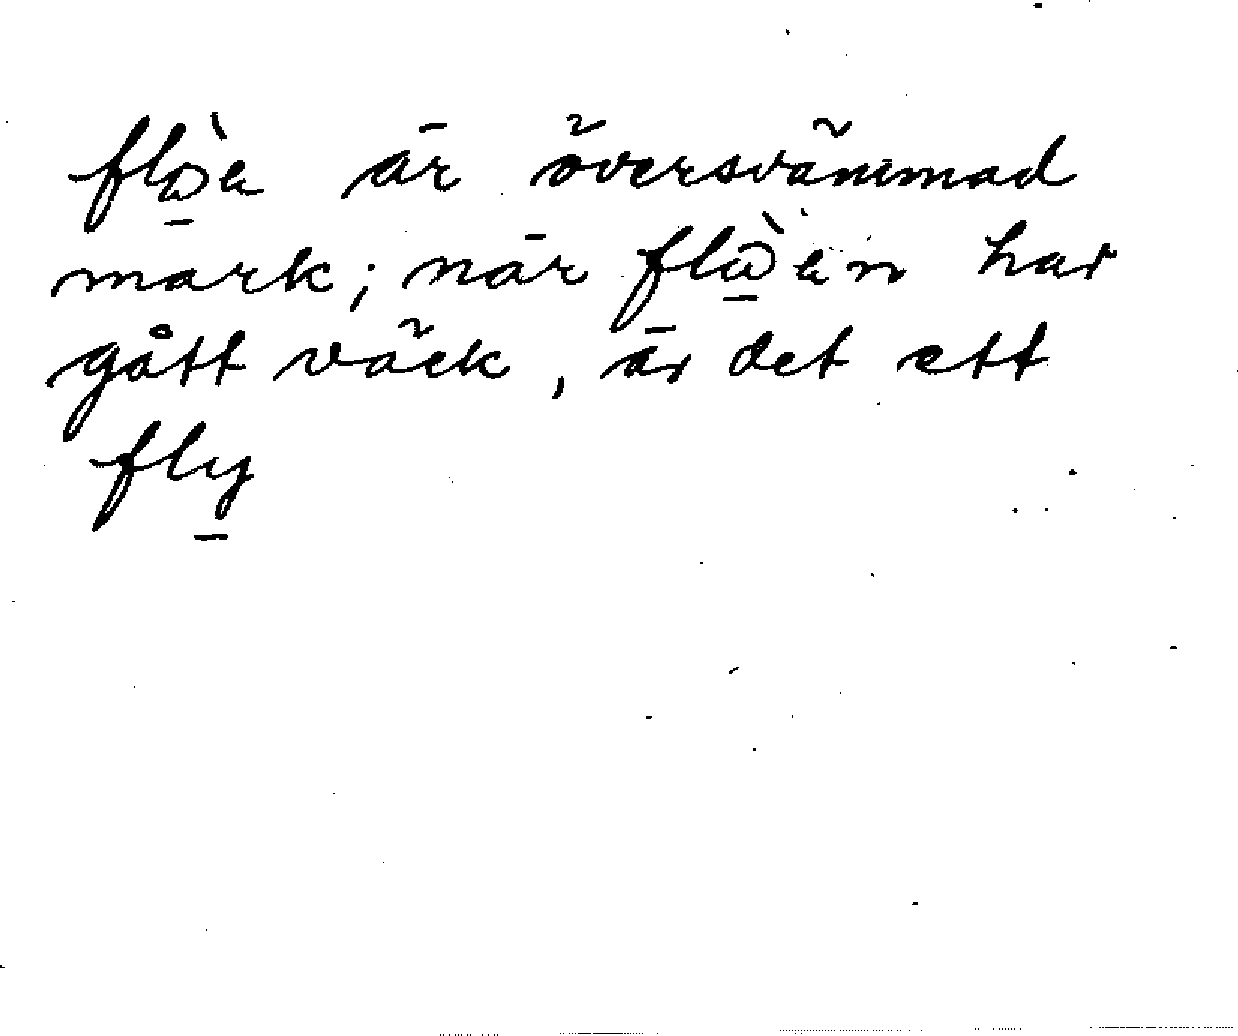 flὼ̲a är översvämmad
mark; när flὼ̲an har
gått väck, är det ett
fly̲